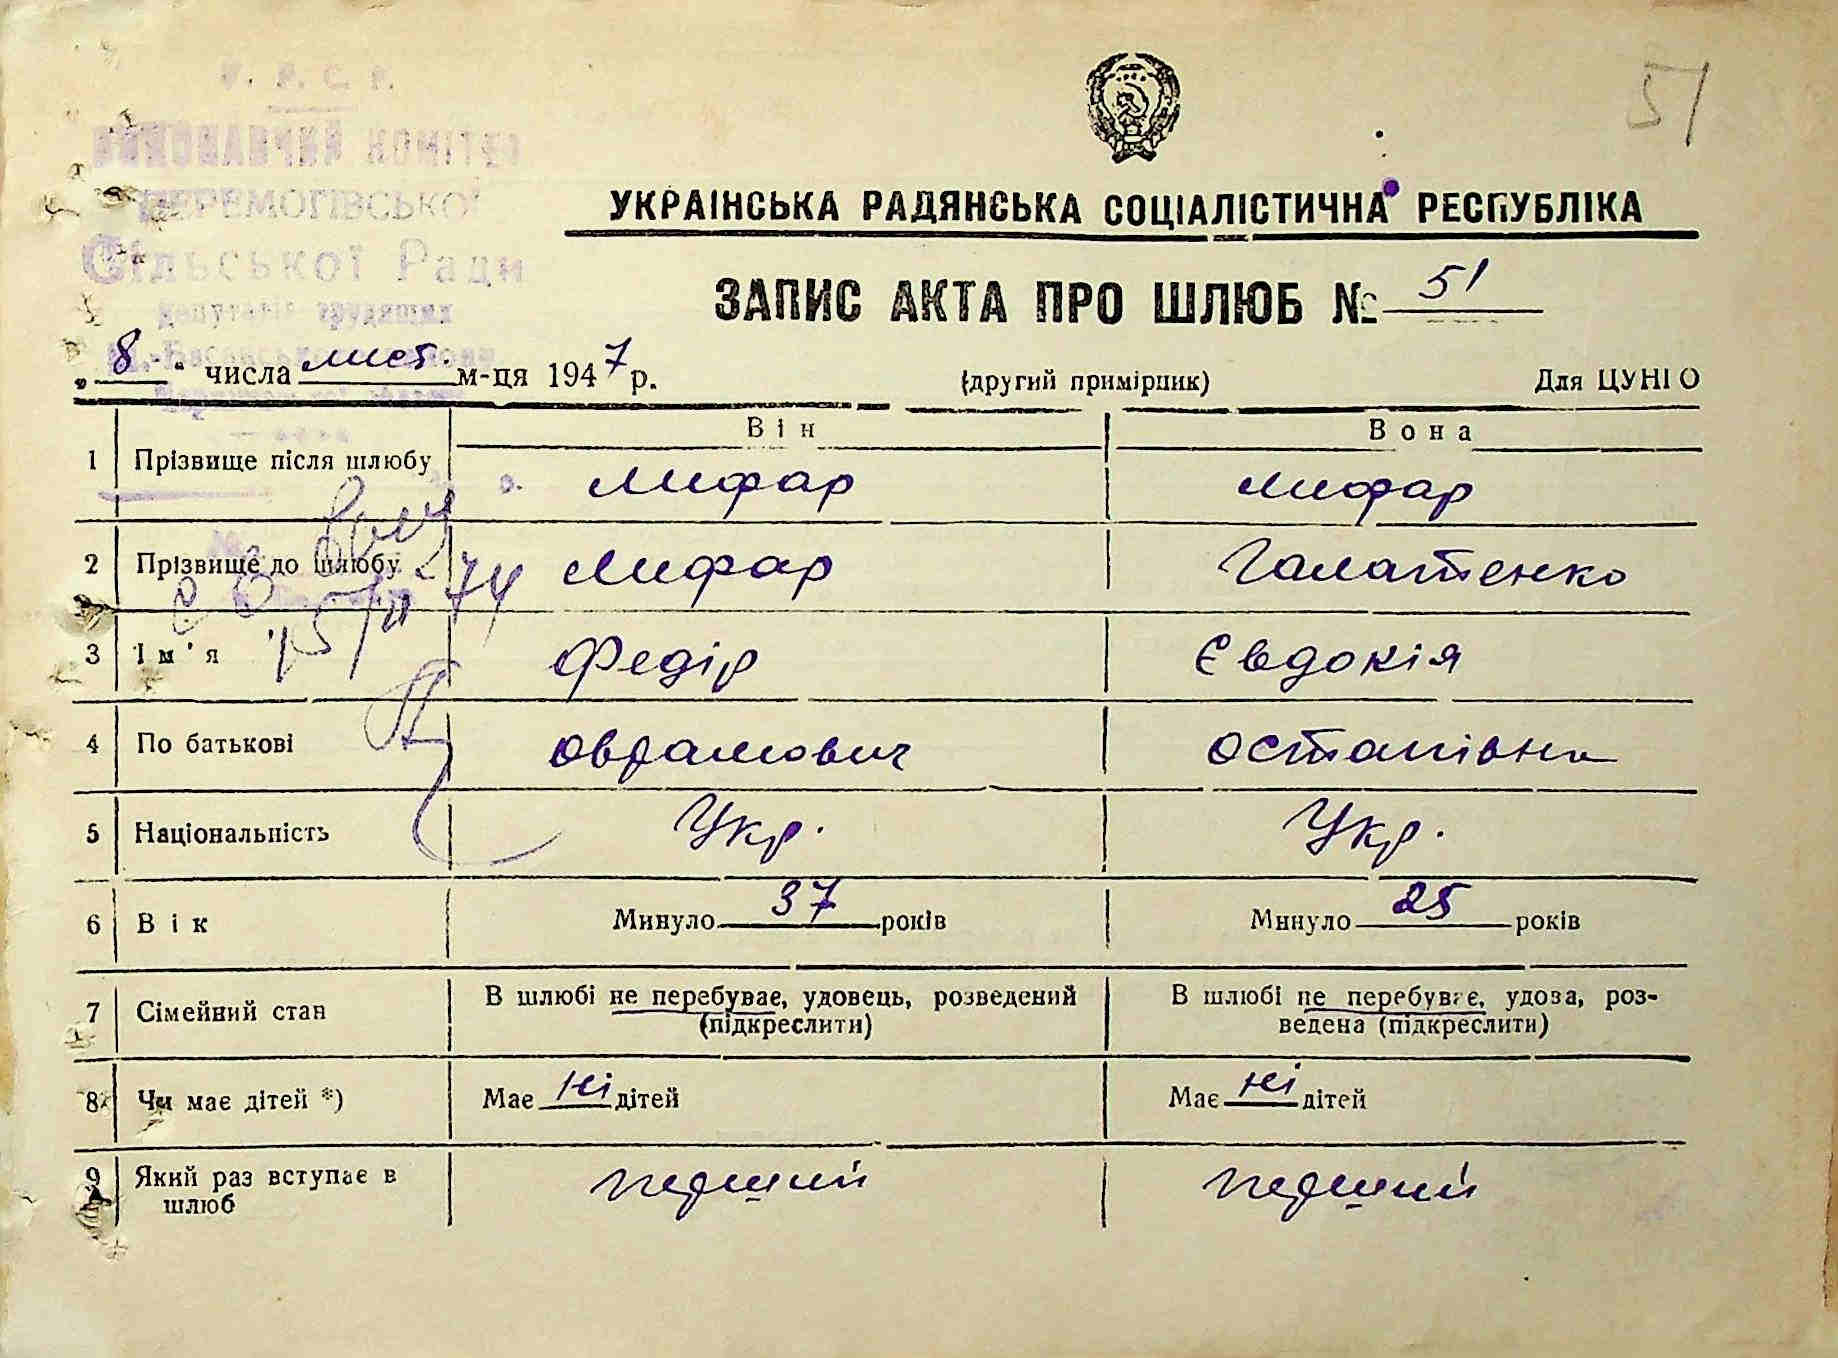 51
У. Р. С. Р.
ВИКОНАВЧИЙ КОМІТЕТ
ПЕРЕМОГІВСЬКОЇ
Сільської Ради
депутатів трудящих
УКРАЇНСЬКА РАДЯНСЬКА СОЦІАЛІСТИЧНА РЕСПУБЛІКА
ЗАПИС АКТА ПРО ШЛЮБ № 51
„ 8 " числа лист. м-ця 1947 р. (другий примірник) Для ЦУНГО
Він Вона
1 Прізвище після шлюбу Лифар Лифар
2 Прізвище до шлюбу Лифар Галатенко
3 Ім'я Федір Євдокія
4 По батькові Оврамович Остапівна
5 Національність Укр. Укр.
6 Вік Минуло 37 років Минуло 25 років
7 Сімейний стан В шлюбі не перебуває, удовець, розведений (підкреслити) В шлюбі не перебуває, удова, роз-
ведена (підкреслити)
8 Чи має дітей *) Має Ні дітей Має Ні дітей
9 Який раз вступає в шлюб перший перший